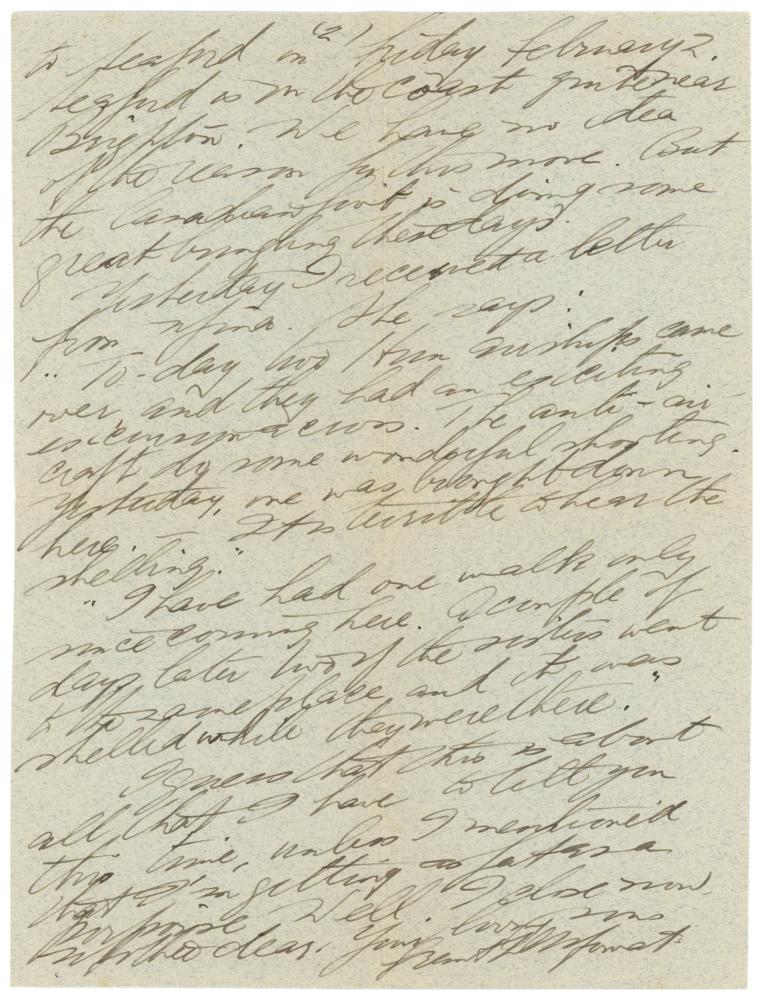 (2)
to Seaford on Friday February 2.
Seaford is on the coast quite near
Brighton. We have no idea
of the reason for this move. But
the Canadian is doing some
great bungling these days.
Yesterday I received a letter
from Nina. She says:
"To-day two Hun airships came
over, and they had an exciting
across. The anti-air-
craft do some wonderful shooting.
Yesterday, one was brought down
here. – It is terrible to hear the
shelling."
"I have had one walk only
since coming here. A couple of
days later two of the sisters went
to the same place and it was
shelled while they were there."
I guess that this is about
all that I have to tell you
this time, unless I mentioned
that I'm getting as fat as a
porpoise. Well. I close now,
Mother dear. Your loving sons